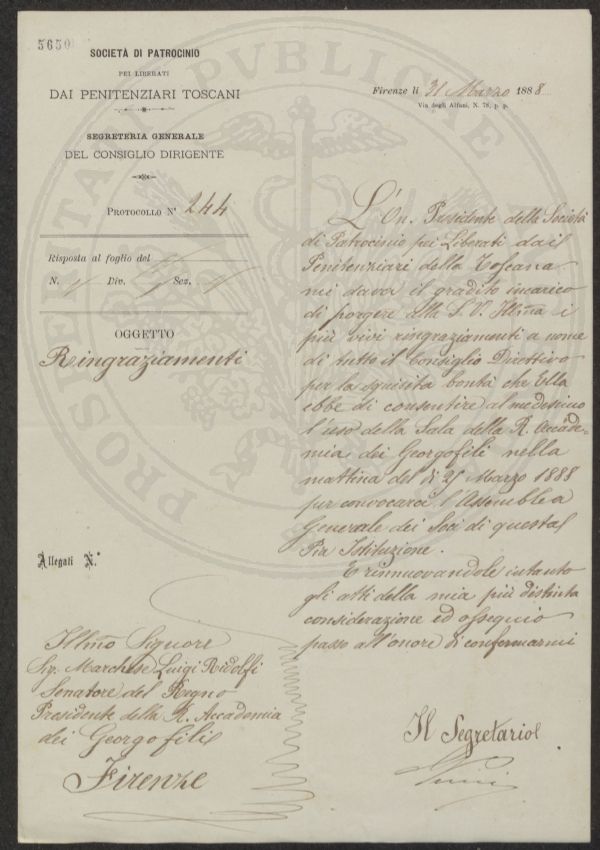 5650
SOCIETÀ DI PATROCINIO
PEI LIBERATI
DAI PENITENZIARI TOSCANI
SEGRETERIA GENERALE
DEL CONSIGLIO DIRIGENTE
PROTOCOLLO N° 244
Risposta al foglio del
N. Div. Sez.
OGGETTO
Ringraziamenti
Allegati N.°
Firenze li 31 Marzo 1888
Via degli Alfani, N. 78, p. p.
L'On. Presidente della Società
di Patrocinio pei Liberati dai
Penitenziari della Toscana
mi dava il gradito incarico
di porgere alla S. V. Illma i
più vivi ringraziamenti a nome
di tutto il Consiglio Direttivo
per la squisita bontà che Ella
ebbe di consentire al medesimo
l'uso della Sala della R. Accade-
mia dei Georgofili nella
mattina del dì 25 Marzo 1888
per convocarci l'Assemblea
Generale dei Soci di questa
Pia Istituzione.
E rinnuovandole intanto
gli atti della mia più distinta
considerazione ed ossequio
passo all'onore di confermarmi
Il Segretario
Illmo Signore
Sig. Marchese Luigi Ridolfi
Senatore del Regno
Presidente della R. Accademia
dei Georgofili
Firenze
PROSPERITATI PUBLICAE